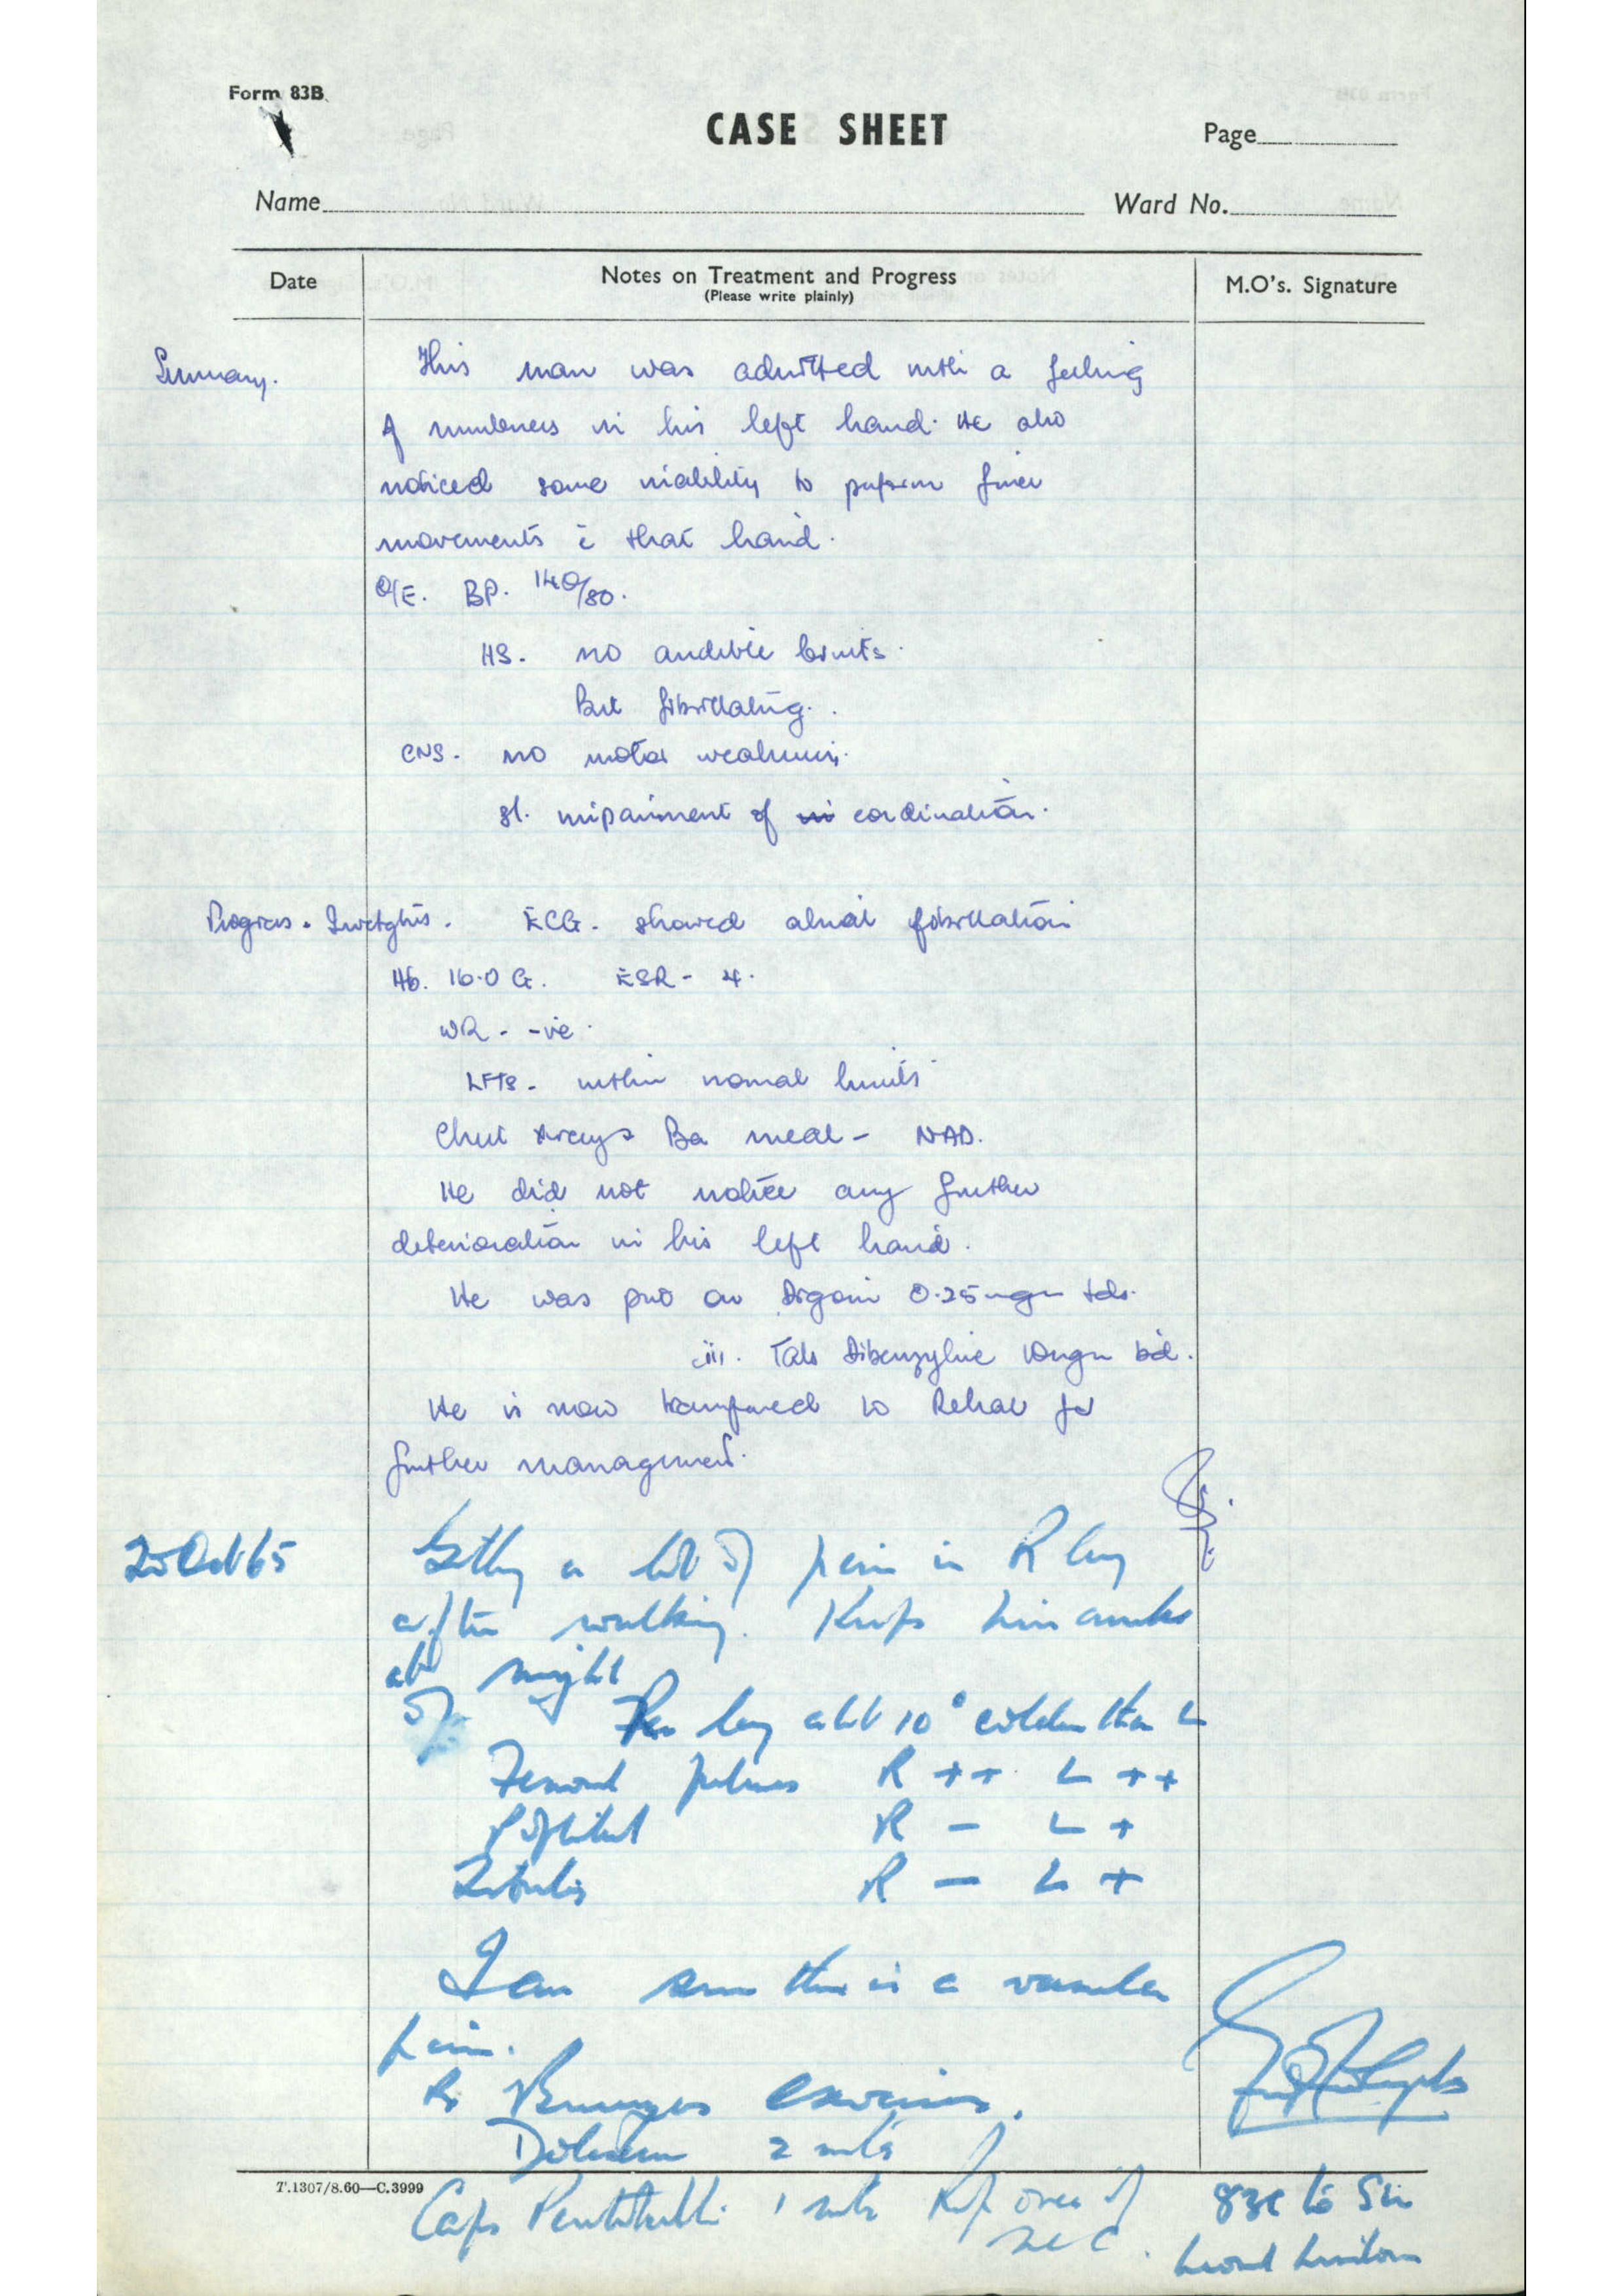 Form 83B
CASE SHEET
Page
Name
Ward No.
Date
Notes on Treatment and Progress
(Please write plainly)
M.O's. Signature
Summary.
This man was admitted with a feeling
of numbness in his left hand. He also
noticed some inability to perform finer
movements c̄ that hand.
O/E. BP. 140/80.
HS. no audible bruits.
But fibrillating.
CNS. no motor weakness.
sl. impairment of in cordination.
Progress. Investgtns. ECG. showed atrial fibrillation
Hb. 16.0 G. ESR - 4.
WR - -ve.
LFTs - within normal limits
Chest Xrays Ba meal - NAD.
He did not notice any further
deterioration in his left hand.
He was put on Digoxin 0.25 mgm tds.
Tab Dibenzyline 10mgm bd.
He is now transferred to Rehab for
further management.
25 Oct 65
Getting a lot of pain in R leg
after walking. Keeps him awake
at night
leg abt 10° colder than L
Femoral pulses R ++ L ++
Popliteal R - L +
Tibialis R - L +
I am sure this is a vascular
pain.
Rx Buerger exercises.
2
Caps 1 Rep over if
nec.
83E to Sir